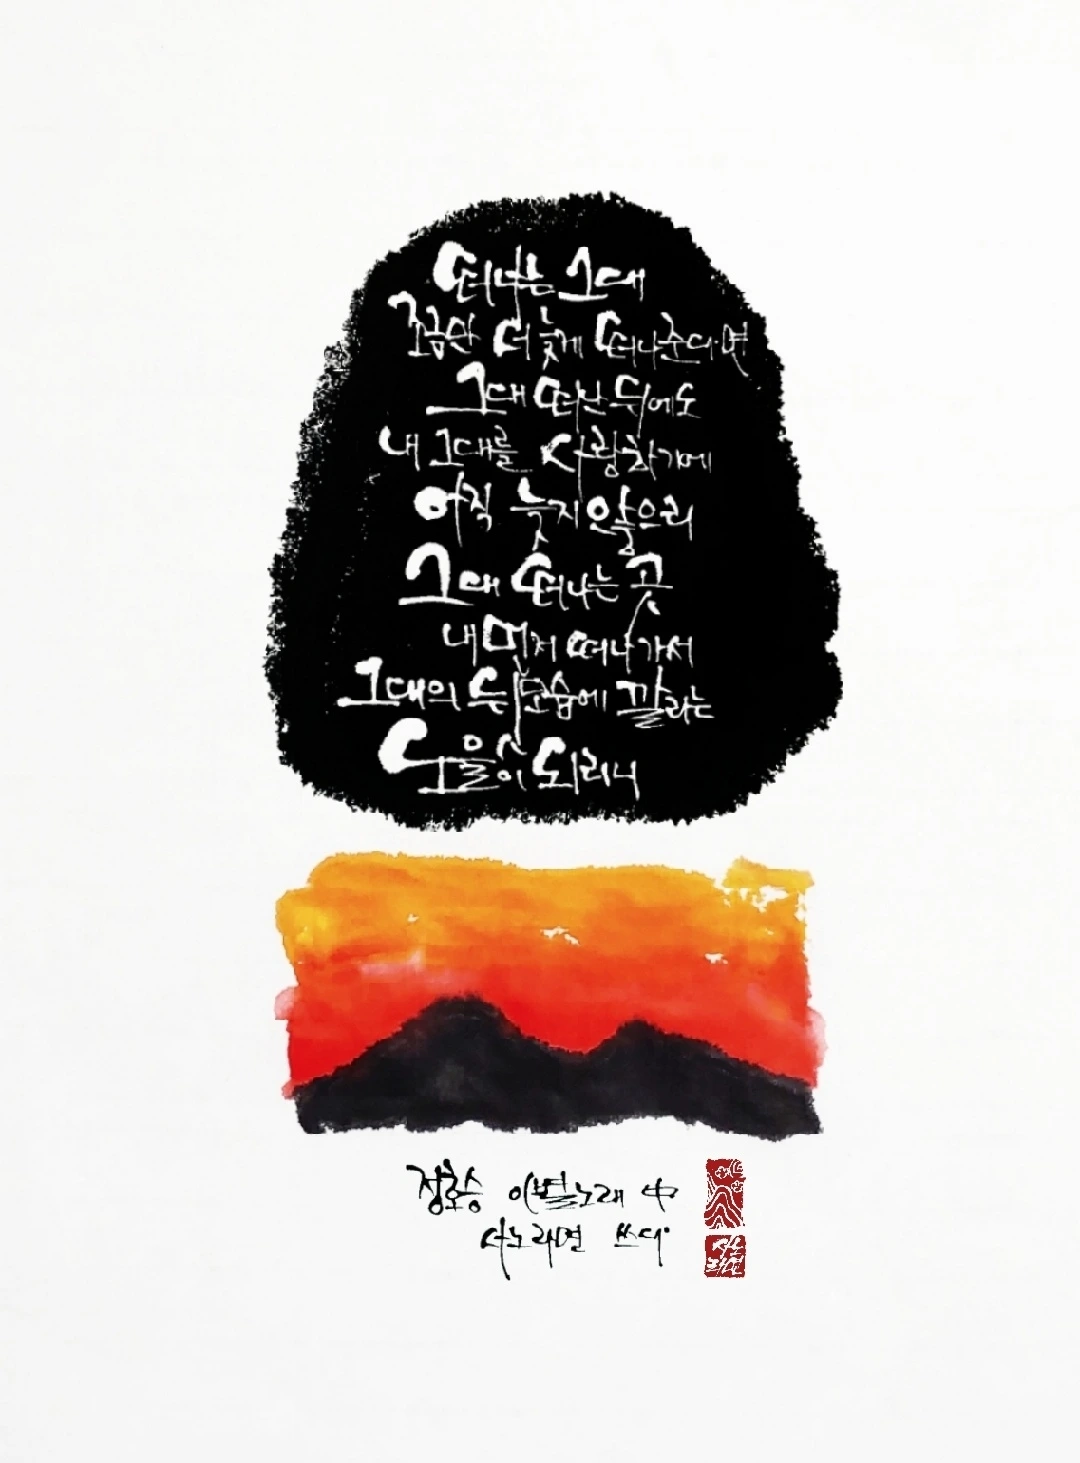 떠나는 그대
조금만 더 늦게 떠나준다면
그대 떠난 뒤에도
내 그대를 사랑하기에
아직 늦지 않으리
그대 떠나는 곳
내 먼저 떠나가서
그대의 뒷모습에 깔리는
노을이 되리니
정호승 이별노래 中
서노래면 쓰다